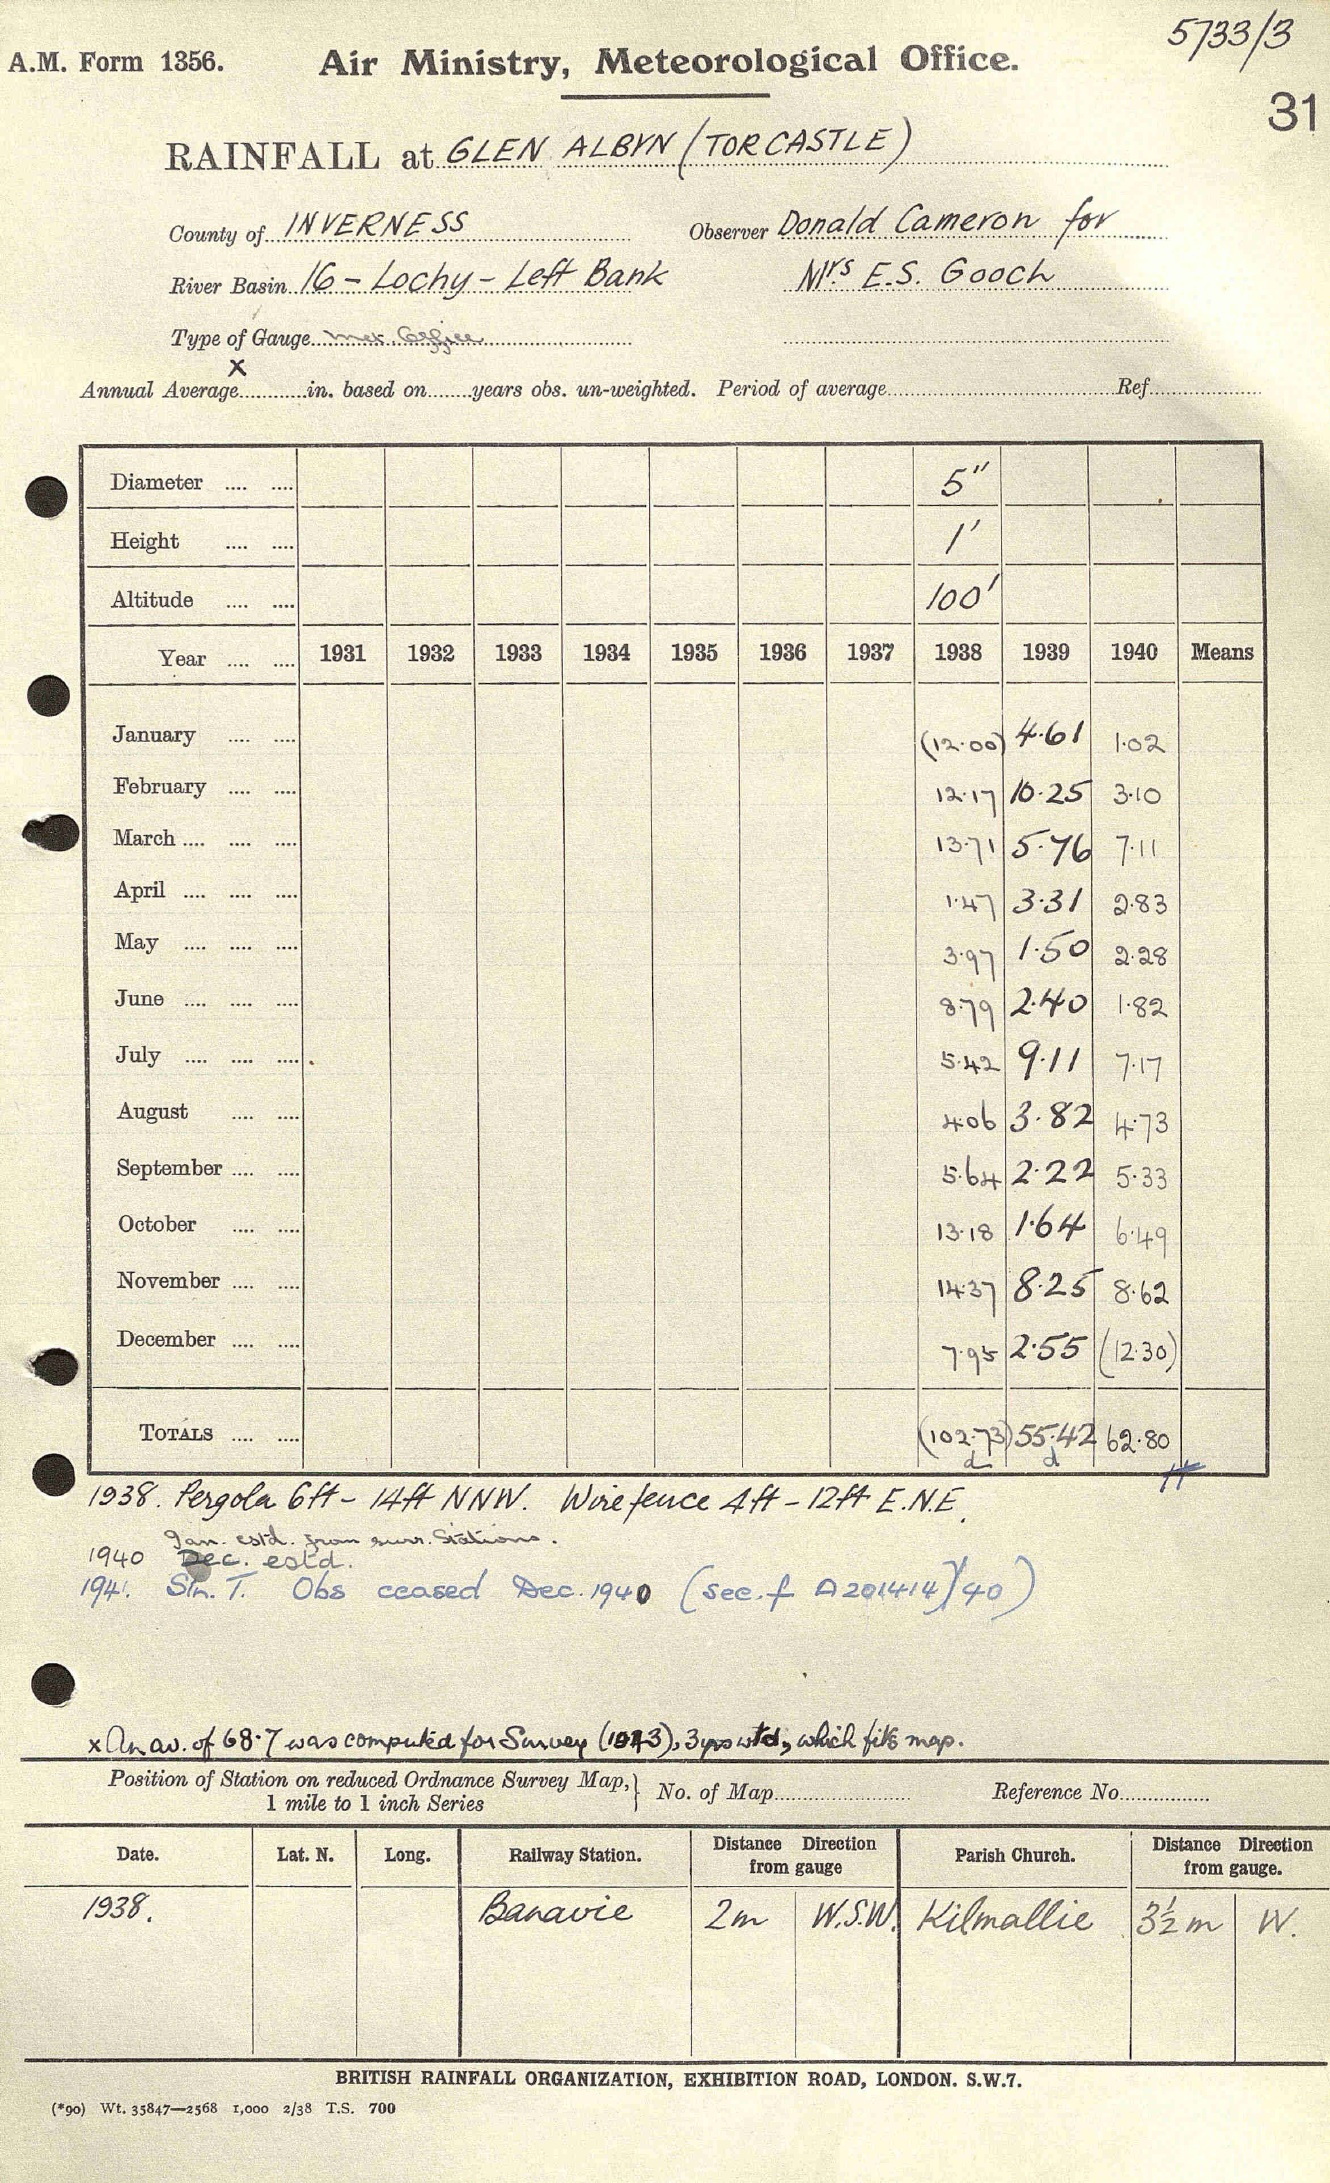 5733/3
A.M. Form 1356. Air Ministry, Meteorological Office.
31
RAINFALL at GLEN ALBYN (TORCASTLE)
County of INVERNESS Observer Donald Cameron for
River Basin 16 - Lochy - Left Bank Mrs E.S. Gooch
Type of Gauge Met. Office
x
Annual Average in. based on years obs. un-weighted. Period of average Ref
Diameter 5"
Height 1'
Altitude 100'
Year 1931 1932 1933 1934 1935 1936 1937 1938 1939 1940 Means
January (12.00) 4.61 1.02
February 12.17 10.25 3.10
March 13.71 5.76 7.11
April 1.47 3.31 2.83
May 3.97 1.50 2.28
June 8.79 2.40 1.82
July 5.42 9.11 7.17
August 4.06 3.82 4.73
September 5.64 2.22 5.33
October 13.18 1.64 6.49
November 14.37 8.25 8.62
December 7.95 2.55 (12.30)
TOTALS (102.73) 55.42 62.80
d d
1938. Pergola 6ft - 14ft NNW. Wire fence 4ft - 12ft E.N.E.
Jan. estd. from surr. Stations.
1940 Dec. estd.
1941. Stn. T. Obs ceased Dec. 1940 (see f A201414/40)
x An av. of 68.7 was computed for Survey (1943), 3 yrs wtd, which fits map.
Position of Station on reduced Ordnance Survey Map, } No. of Map Reference No.
1 mile to 1 inch Series
Date. Lat. N. Long. Railway Station. Distance Direction from gauge Parish Church. Distance Direction from gauge.
1938. Banavie 2m W.S.W. Kilmallie 3½ m W.
BRITISH RAINFALL ORGANIZATION, EXHIBITION ROAD, LONDON. S.W.7.
(*90) Wt. 35847—2568 1,000 2/38 T.S. 700